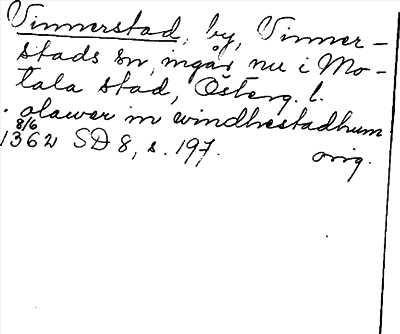 Vinnerstad, by, Vinner-
stads sn, ingår nu i Mo-
tala stad, Österg. l.
. olawer in windhestadhum
8/6
1362 SD 8, s. 197. orig.